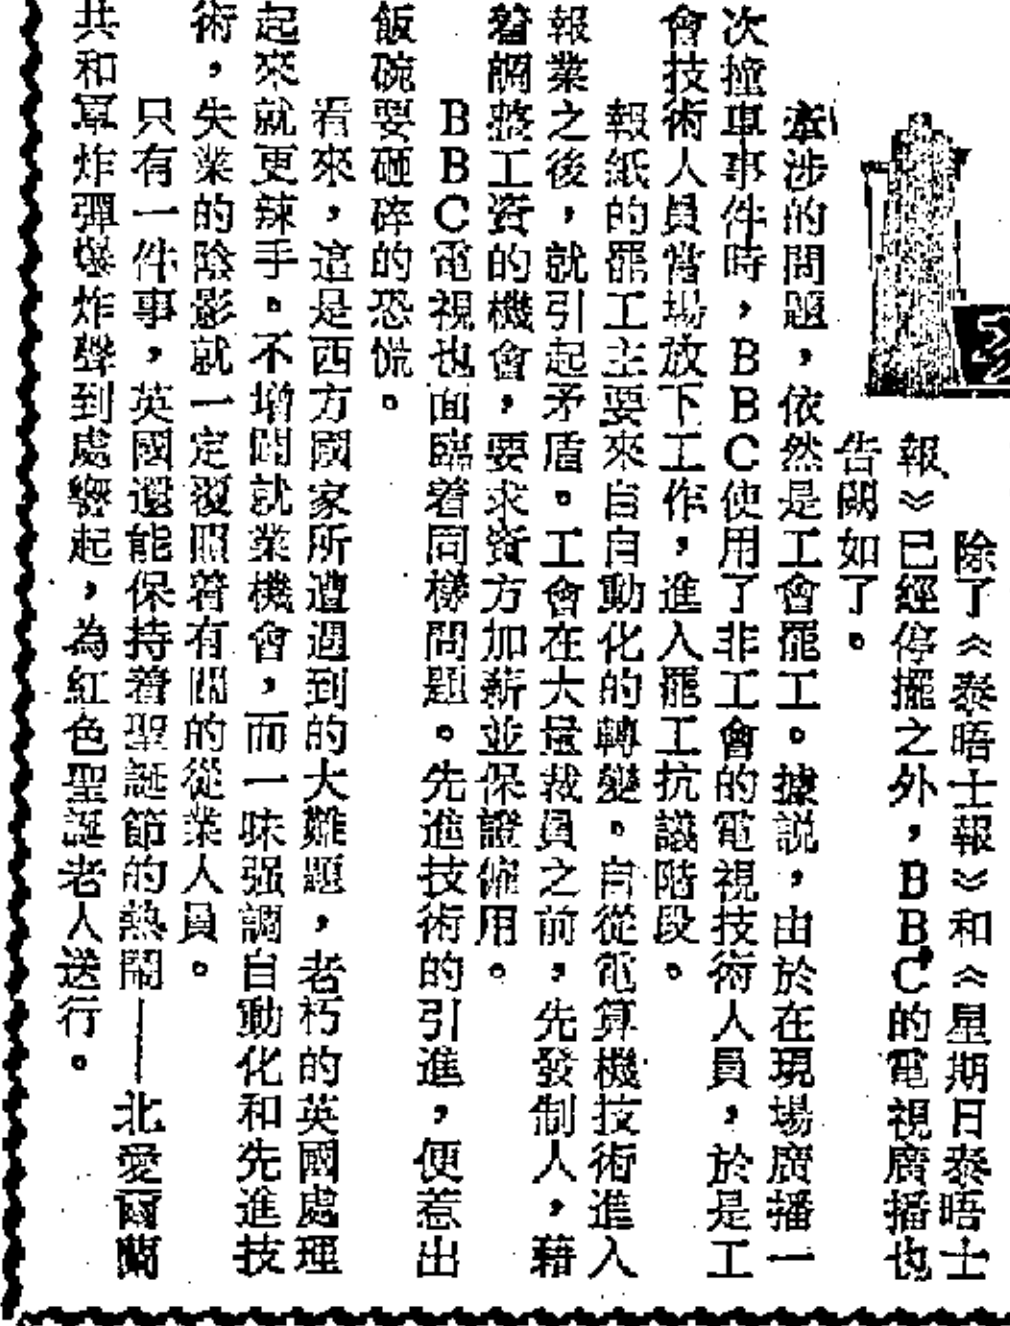 除了《泰晤士報》和《星期日泰晤士
報》已經停擺之外，BBC的電視廣播也
告闕如了。
牽涉的問題，依然是工會罷工。據説，由於在現場廣播一
次撞車事件時，BBC使用了非工會的電視技術人員，於是工
會技術人員當場放下工作，進入罷工抗議階段。
報紙的罷工主要來自自動化的轉變。自從電算機技術進入
報業之後，就引起矛盾。工會在大量裁員之前，先發制人，藉
着調整工資的機會，要求資方加薪並保證僱用。
BBC電視也面臨着同樣問題。先進技術的引進，便惹出
飯碗要砸碎的恐慌。
看來，這是西方國家所遭遇到的大難題，老朽的英國處理
起來就更辣手。不增開就業機會，而一味强調自動化和先進技
術，失業的陰影就一定覆照着有關的從業人員。
只有一件事，英國還能保持着聖誕節的熱鬧——北愛爾蘭
共和軍炸彈爆炸聲到處響起，為紅色聖誕老人送行。